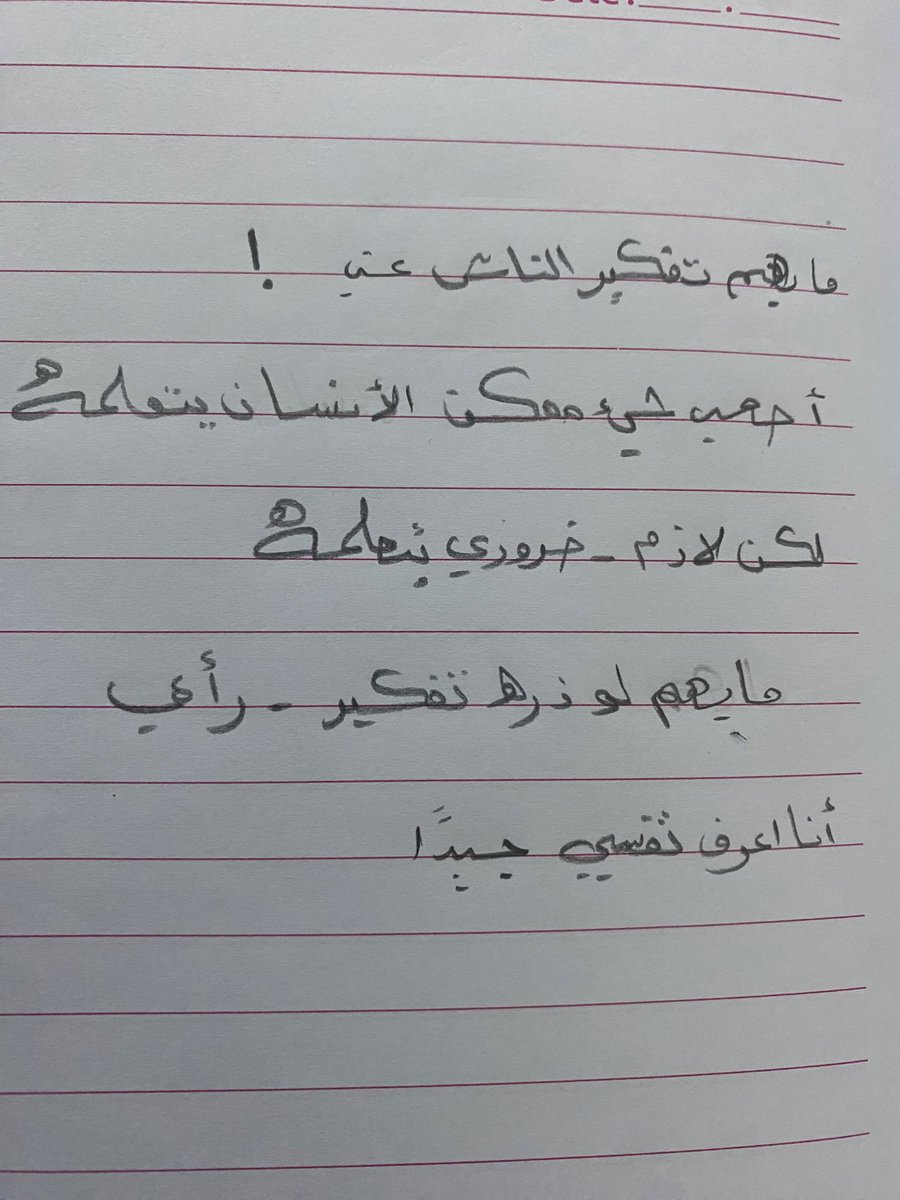 مايهم تفكير الناس عني !
أصعب شيء ممكن الأنسان يتعلمه
لكن لازم - ضروري يتعلمه
مايهم لو ذرة تفكير - رأي
أنا اعرف نفسي جيدًا